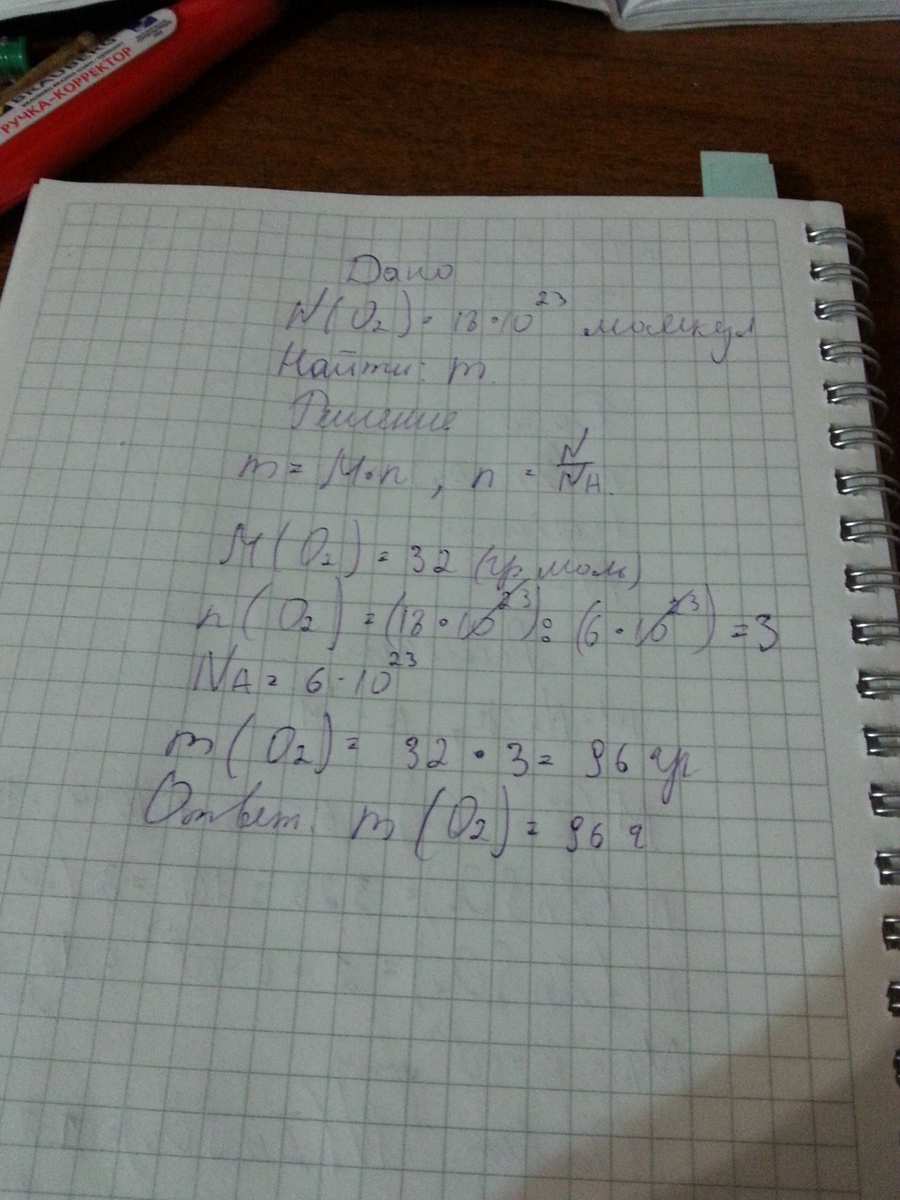 BRAUBERG
РУЧКА-КОРРЕКТОР
Дано
N(O₂) = 18·10²³ молекул
Найти: m.
Решение
m = M·n, n = N/NA.
M(O₂) = 32 (гр.моль)
n(O₂) = (18·10²³) : (6·10²³) = 3
NA = 6·10²³
m(O₂) = 32·3 = 96 гр
Ответ. m(O₂) = 96 г